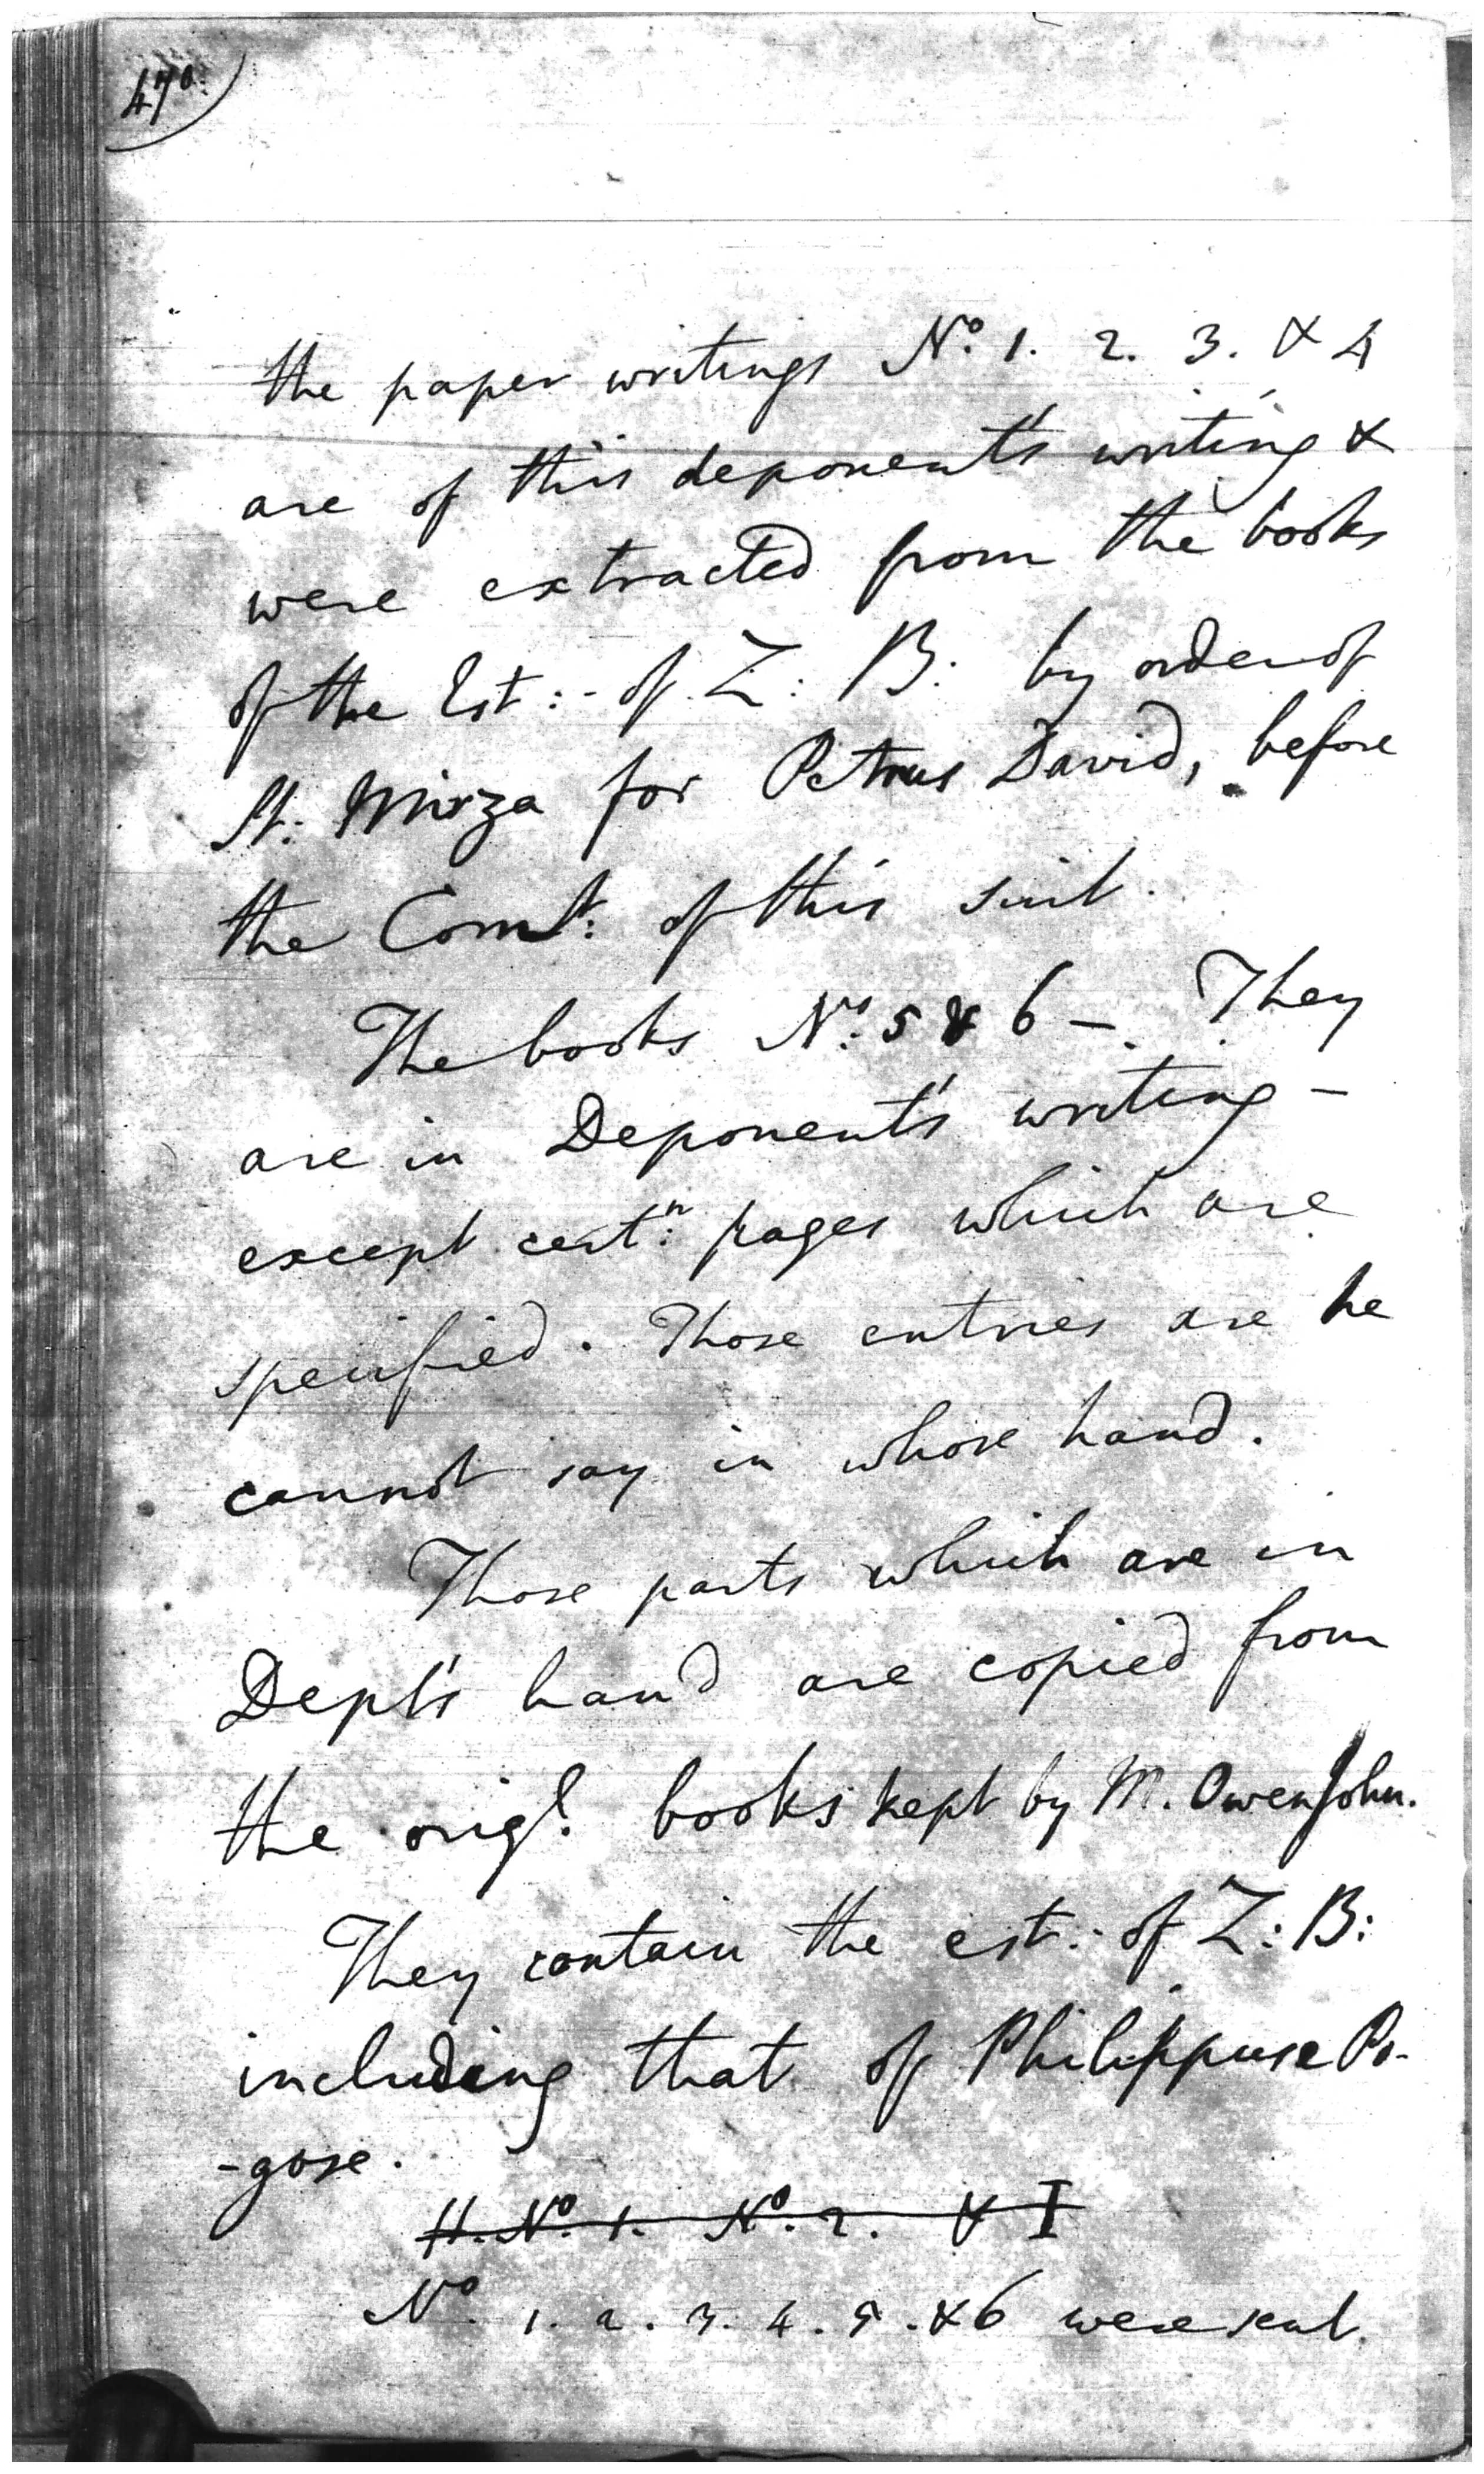 470.
the paper writings No. 1. 2. 3. & 4
are of this deponent's writing &
were extracted from the books
of the Est:- of Z: B: by order of
St: Mirza for Petrus David, before
the Comt: of this suit.
The books No. 5 & 6 - They
are in Deponent's writing -
except certn: pages which are
specified. Those entries are he
cannot say in whose hand.
Those parts which are in
Dept's hand are copied from
the origl. books kept by M. Owenjohn.
They contain the est: of Z: B:
including that of Philippuse Po-
-gose.
H. No. 1. No. 2. & I
No. 1. 2. 3. 4. 5. & 6 were sent.